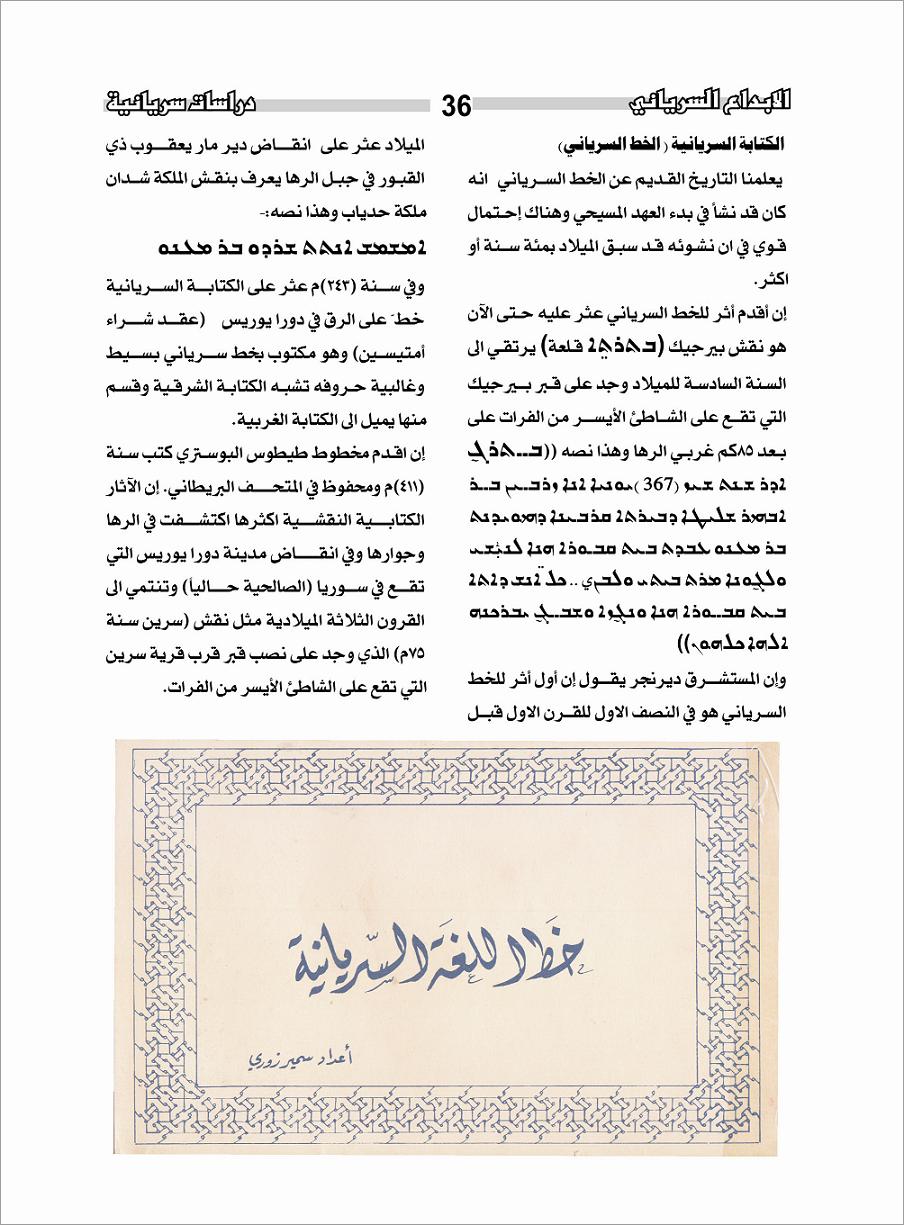 الابداع السرياني
36
دراسات سريانية
الكتابة السريانية ( الخط السرياني)
يعلمنا التاريخ القديم عن الخط السرياني انه
كان قد نشأ في بدء العهد المسيحي وهناك إحتمال
قوي في ان نشوئه قد سبق الميلاد بمئة سنة أو
اكثر.
إن أقدم أثر للخط السرياني عثر عليه حتى الآن
هو نقش بيرجيك (ܒܬܪܬܐ قلعة) يرتقي الى
السنة السادسة للميلاد وجد على قبر بيرجيك
التي تقع على الشاطئ الأيسر من الفرات على
بعد ٨٥كم غربي الرها وهذا نصه ((
(367)
ܐܠܗܐ ܟܠܗܘܢ))
وإن المستشرق ديرنجر يقول إن أول أثر للخط
السرياني هو في النصف الاول للقرن الاول قبل
الميلاد عثر على انقاض دير مار يعقوب ذي
القبور في جبل الرها يعرف بنقش الملكة شدان
ملكة حدياب وهذا نصه:-
وفي سنة (٢٤٣)م عثر على الكتابة السريانية
خطَ على الرق في دورا يوريس (عقد شراء
أمتيسين) وهو مكتوب بخط سرياني بسيط
وغالبية حروفه تشبه الكتابة الشرقية وقسم
منها يميل الى الكتابة الغربية.
إن اقدم مخطوط طيطوس البوستري كتب سنة
(٤١١)م ومحفوظ في المتحف البريطاني. إن الآثار
الكتابية النقشية اكثرها اكتشفت في الرها
وجوارها وفي انقاض مدينة دورا يوريس التي
تقع في سوريا (الصالحية حالياً) وتنتمي الى
القرون الثلاثة الميلادية مثل نقش (سرين سنة
٧٥م) الذي وجد على نصب قبر قرب قرية سرين
التي تقع على الشاطئ الأيسر من الفرات.
خَط اللغَة السّريانية
أعداد سمير زوري